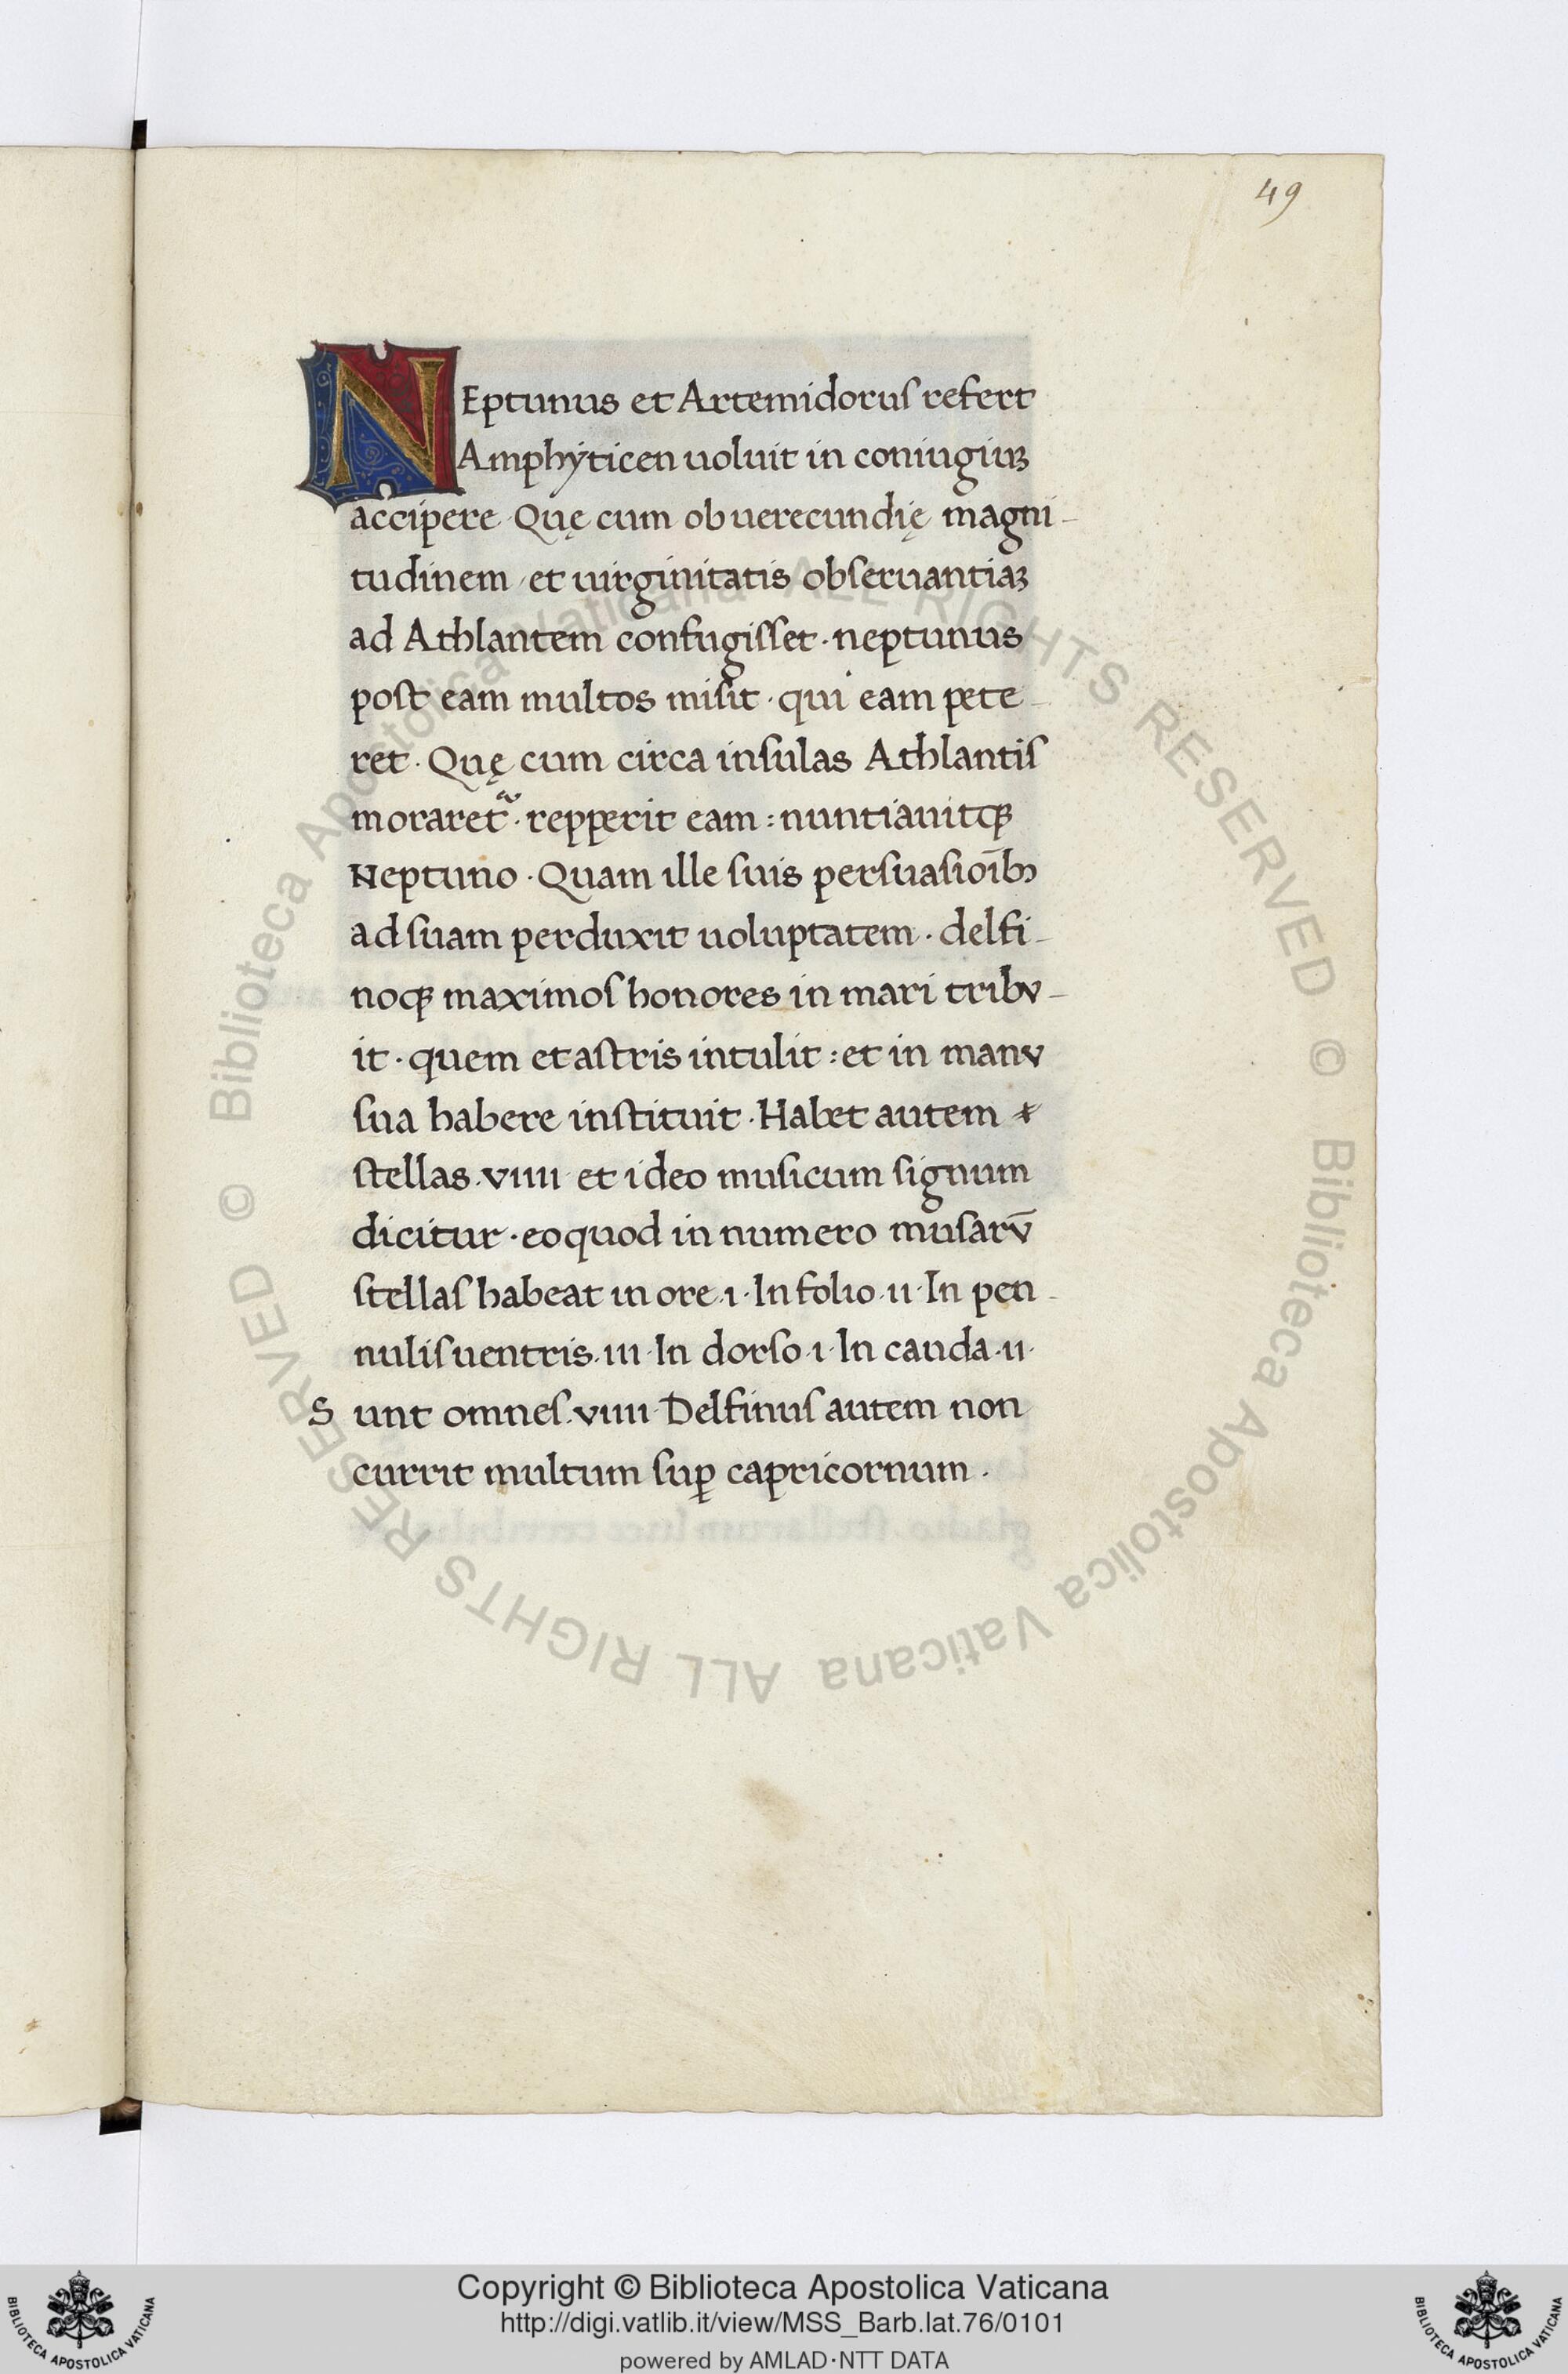 49
NEptunus et Artemidorus refert
Amphyticen uoluit in coniugiuꝫ
accipere · Quę cum ob uerecundię magni-
tudinem · et uirginitatis obseruantiaꝫ
ad Athlantem confugisset · neptunus
post eam multos misit · qui eam pete-
ret · Quę cum circa insulas Athlantis
moraret᷑ · repperit eam : nuntiauitqꝫ
Neptuno · Quam ille suis persuasioībꝫ
ad suam perduxit uoluptatem · delfi-
noqꝫ maximos honores in mari tribv-
it · quem et astris intulit : et in manv
sua habere instituit · Habet autem
stellas · viiii · et ideo musicum signum
dicitur · eo quod in numero musarv̄
stellas habeat in ore · i · In folio · ii · In pen-
nulis uentris · iii · In dorso · i · In cauda · ii ·
Sunt omnes · viiii · Delfinus autem non
currit multum suꝑ capricornum ·
© Biblioteca Apostolica Vaticana ALL RIGHTS RESERVED © Biblioteca Apostolica Vaticana ALL RIGHTS RESERVED
Copyright © Biblioteca Apostolica Vaticana
http://digi.vatlib.it/view/MSS_Barb.lat.76/0101
powered by AMLAD·NTT DATA
BIBLIOTECA APOSTOLICA VATICANA
BIBLIOTECA APOSTOLICA VATICANA